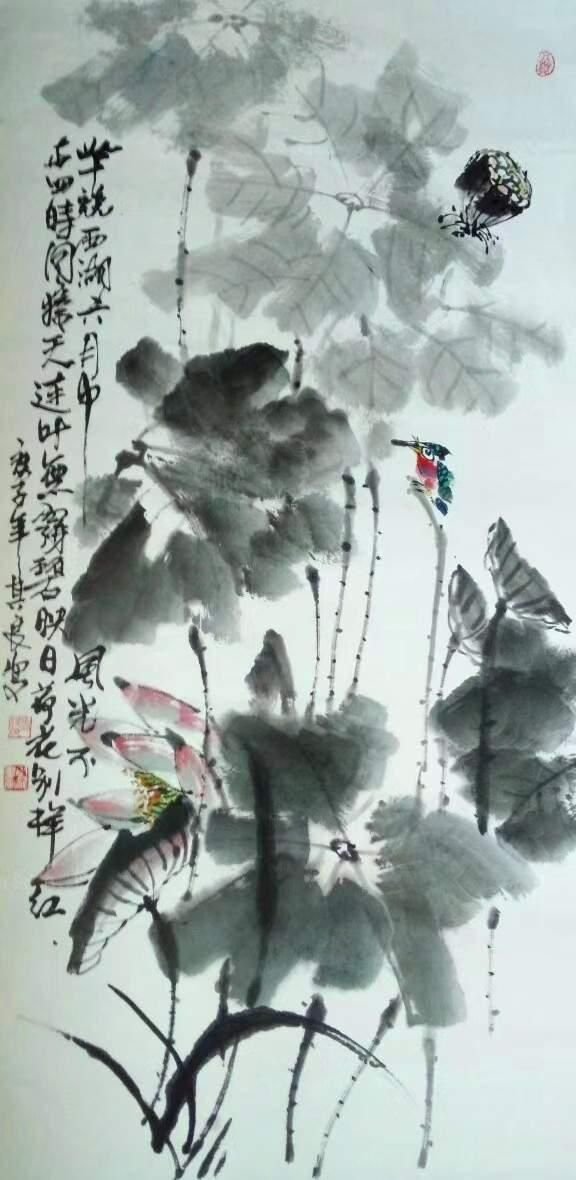 毕竟西湖六月中風光不
与四時同接天莲叶無窮碧映日荷花别样红
庚子年其良写